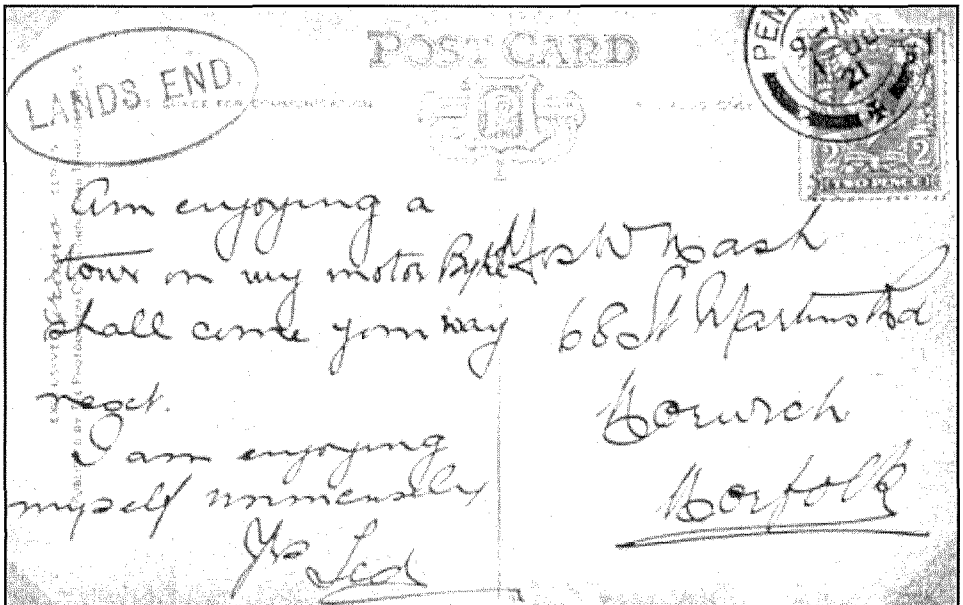 POST CARD
LANDS END
PEN
AM
21
2 2
TWO PENCE
Am enjoying a
tour on my motor Byke
shall come your way
next.
I am enjoying
myself immensely
Yrs
Mrs W Nash
68 St Martins Rd
Norwich
Norfolk